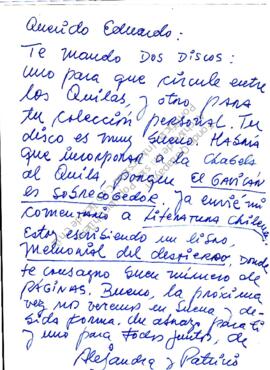 Querido Eduardo:
Te mando dos discos:
uno para que circule entre
los Quilas, y otro para
tu colección personal. Tu
disco es muy bueno. Habría
que incorporar a la Chabela
al Quila, porque El Gavilán
es sobrecogedor. Ya envié mi
comentario a Literatura Chilena
Estoy escribiendo un libro,
Memorial del destierro, donde
te consagno buen número de
páginas. Bueno, la próxima
vez nos veremos en buena y de-
bida forma. Un abrazo para ti
y uno para todos juntos, de
Alejandra y Patricio